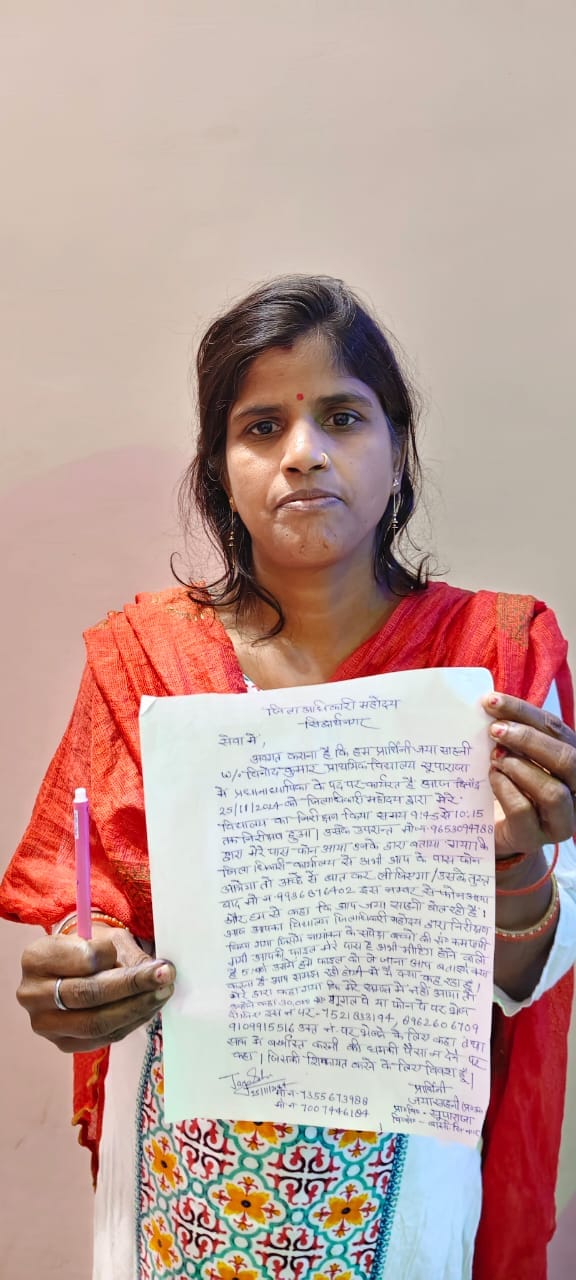 जिला अधिकारी महोदय
सिद्धार्थनगर
सेवा में,
अवगत कराना है कि हम प्रार्थिनी जया साहनी
w/o विनोद कुमार प्राथमिक विद्यालय सूपाराजा
में प्रधानाध्यापिका के पद पर कार्यरत है आज दिनांक
25/11/2024 को जिलाधिकारी महोदय द्वारा मेरे
विद्यालय का निरीक्षण किया समय 9:45 से 10:15
तक निरीक्षण हुआ। उसके उपरान्त मो०न० 9653094788
द्वारा मेरे पास फोन आया उनके द्वारा बताया गया कि
जिला धिकारी कार्यालय से अभी आप के पास फोन
आयेगा तो उनके से बात कर लीजिएगा/उसके तुरन्त
बाद मो न 9936816402 इस नम्बर से फोन आया
और हम से कहा कि आप जया साहनी बोल रही हैं।
आज आपका विद्यालय जिलाधिकारी महोदय द्वारा निरीक्षण
किया गया जिसमें नामांकन के सापेक्ष बच्चों की सं० कम पायी
गयी आपकी फाइल मेरे पास है अभी मीटिंग होने वाली
है उसमें हमें फाइल को ले जाना आप बताइये क्या
करना है आप समझ रही होगी मैं क्या कह रहा हूं।
मेरे द्वारा कहा गया कि मेरे समझ में नहीं आया तो
उन्होंने कहा 30,000 रू० गूगल पे या फोन पे पर भेज
दीजिए इस न० पर- 7521833194, 8962606709
9109915516 उक्त न० पर भेजने के लिए कहा तथा
साथ में बर्खास्त करने की धमकी पैसा न देने पर
कहा। जिसकी शिकायत करने के लिए विवश हूँ।
प्रार्थिनी
मो न- 7355673988
मो न 7007446184
जया साहनी
प्रा० वि०- सूपाराजा